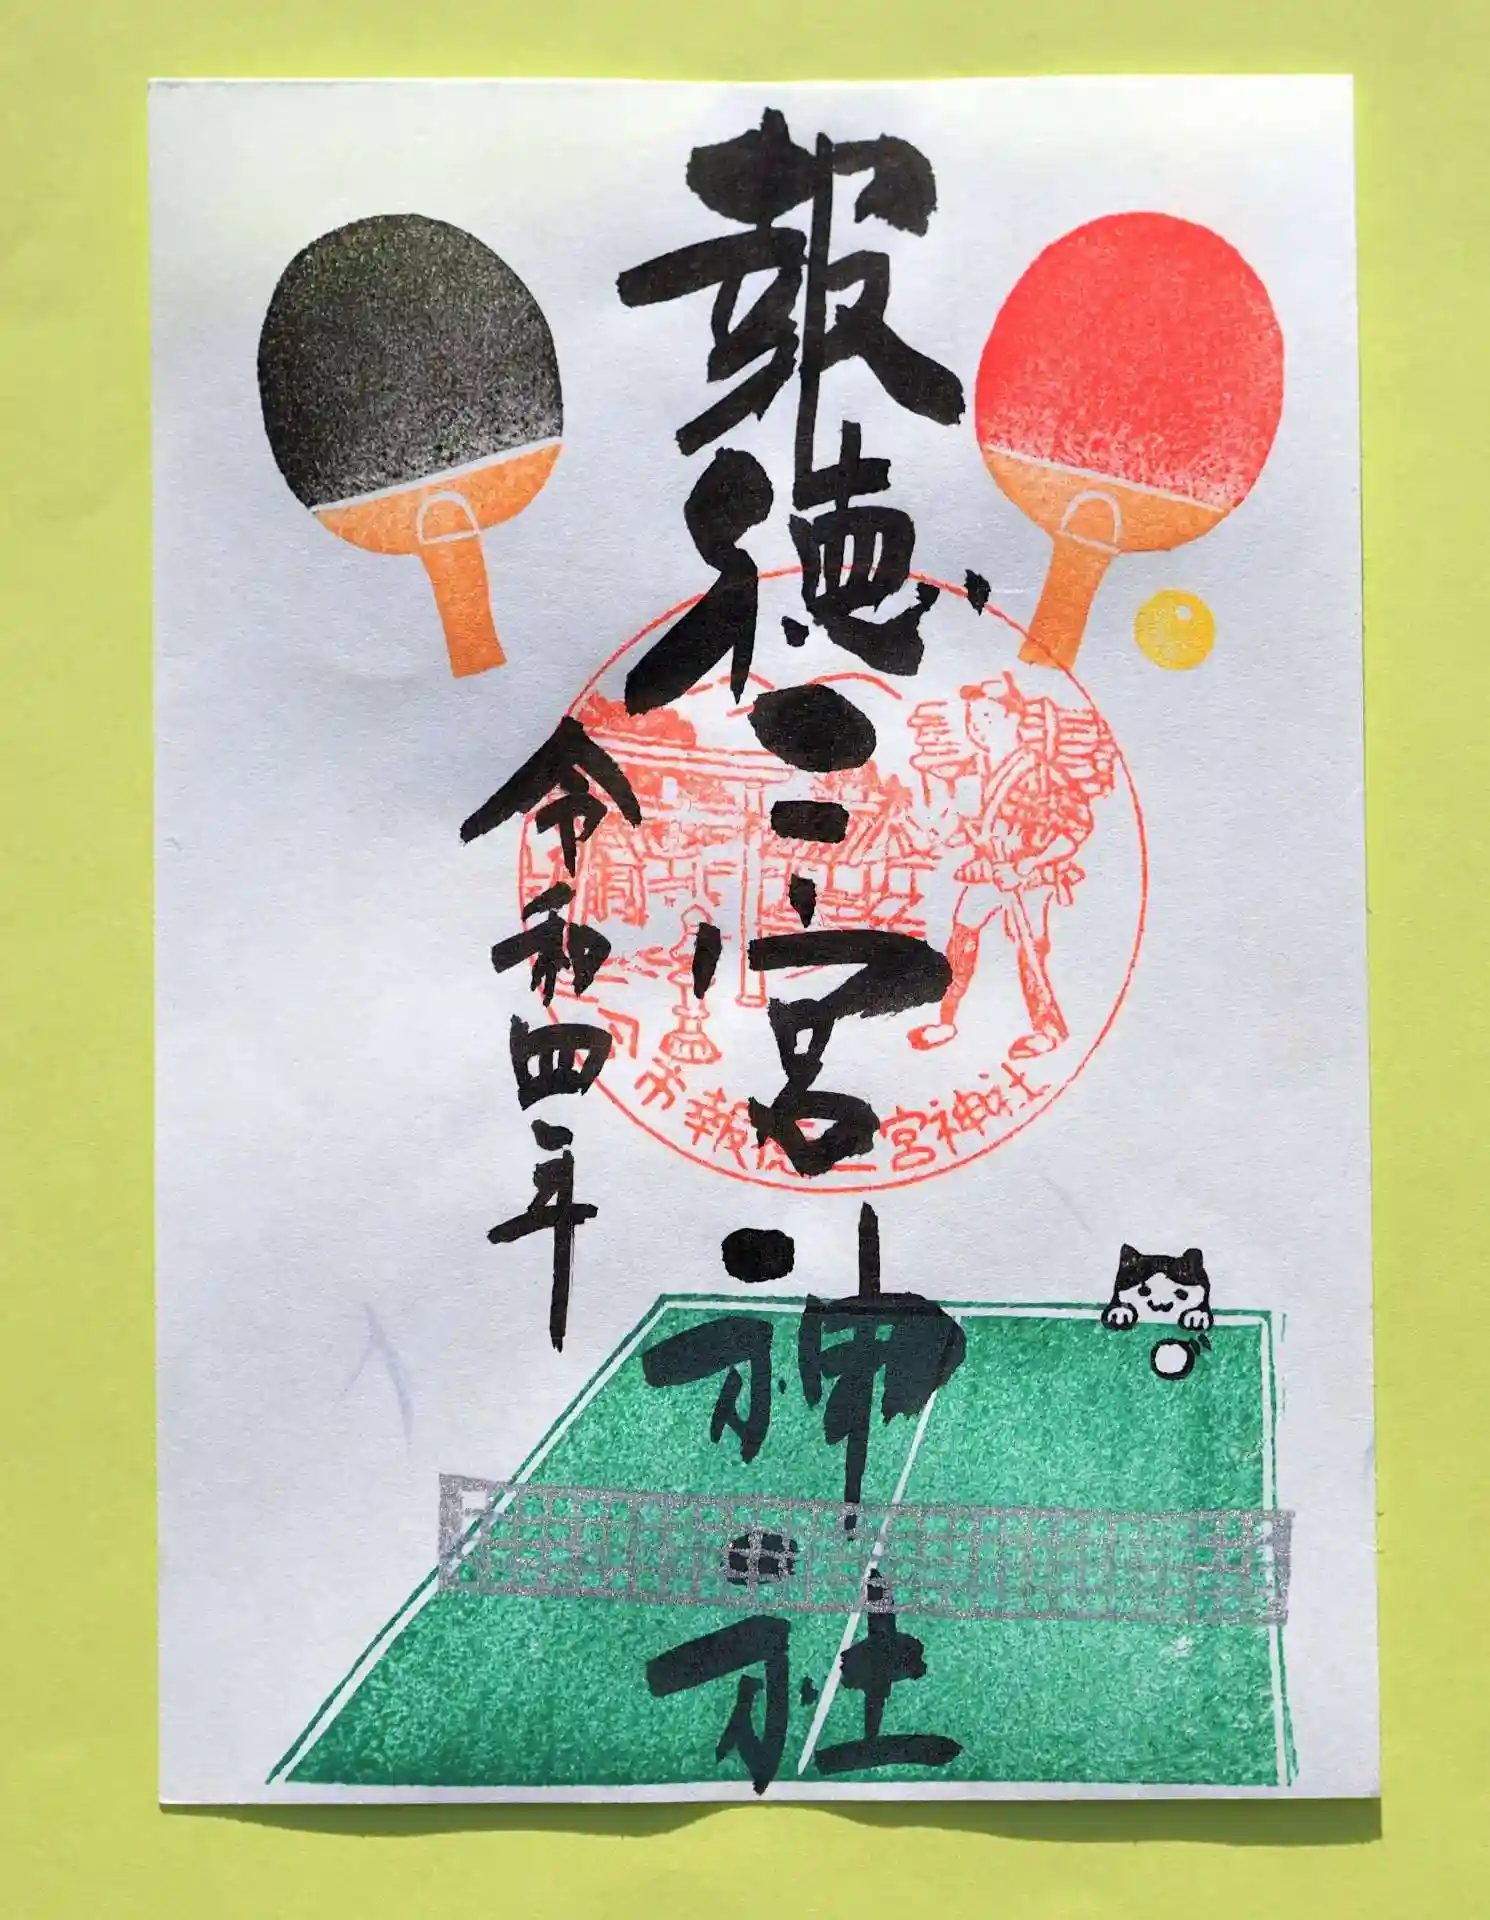 報徳二宮神社
令和四年
市報徳二宮神社